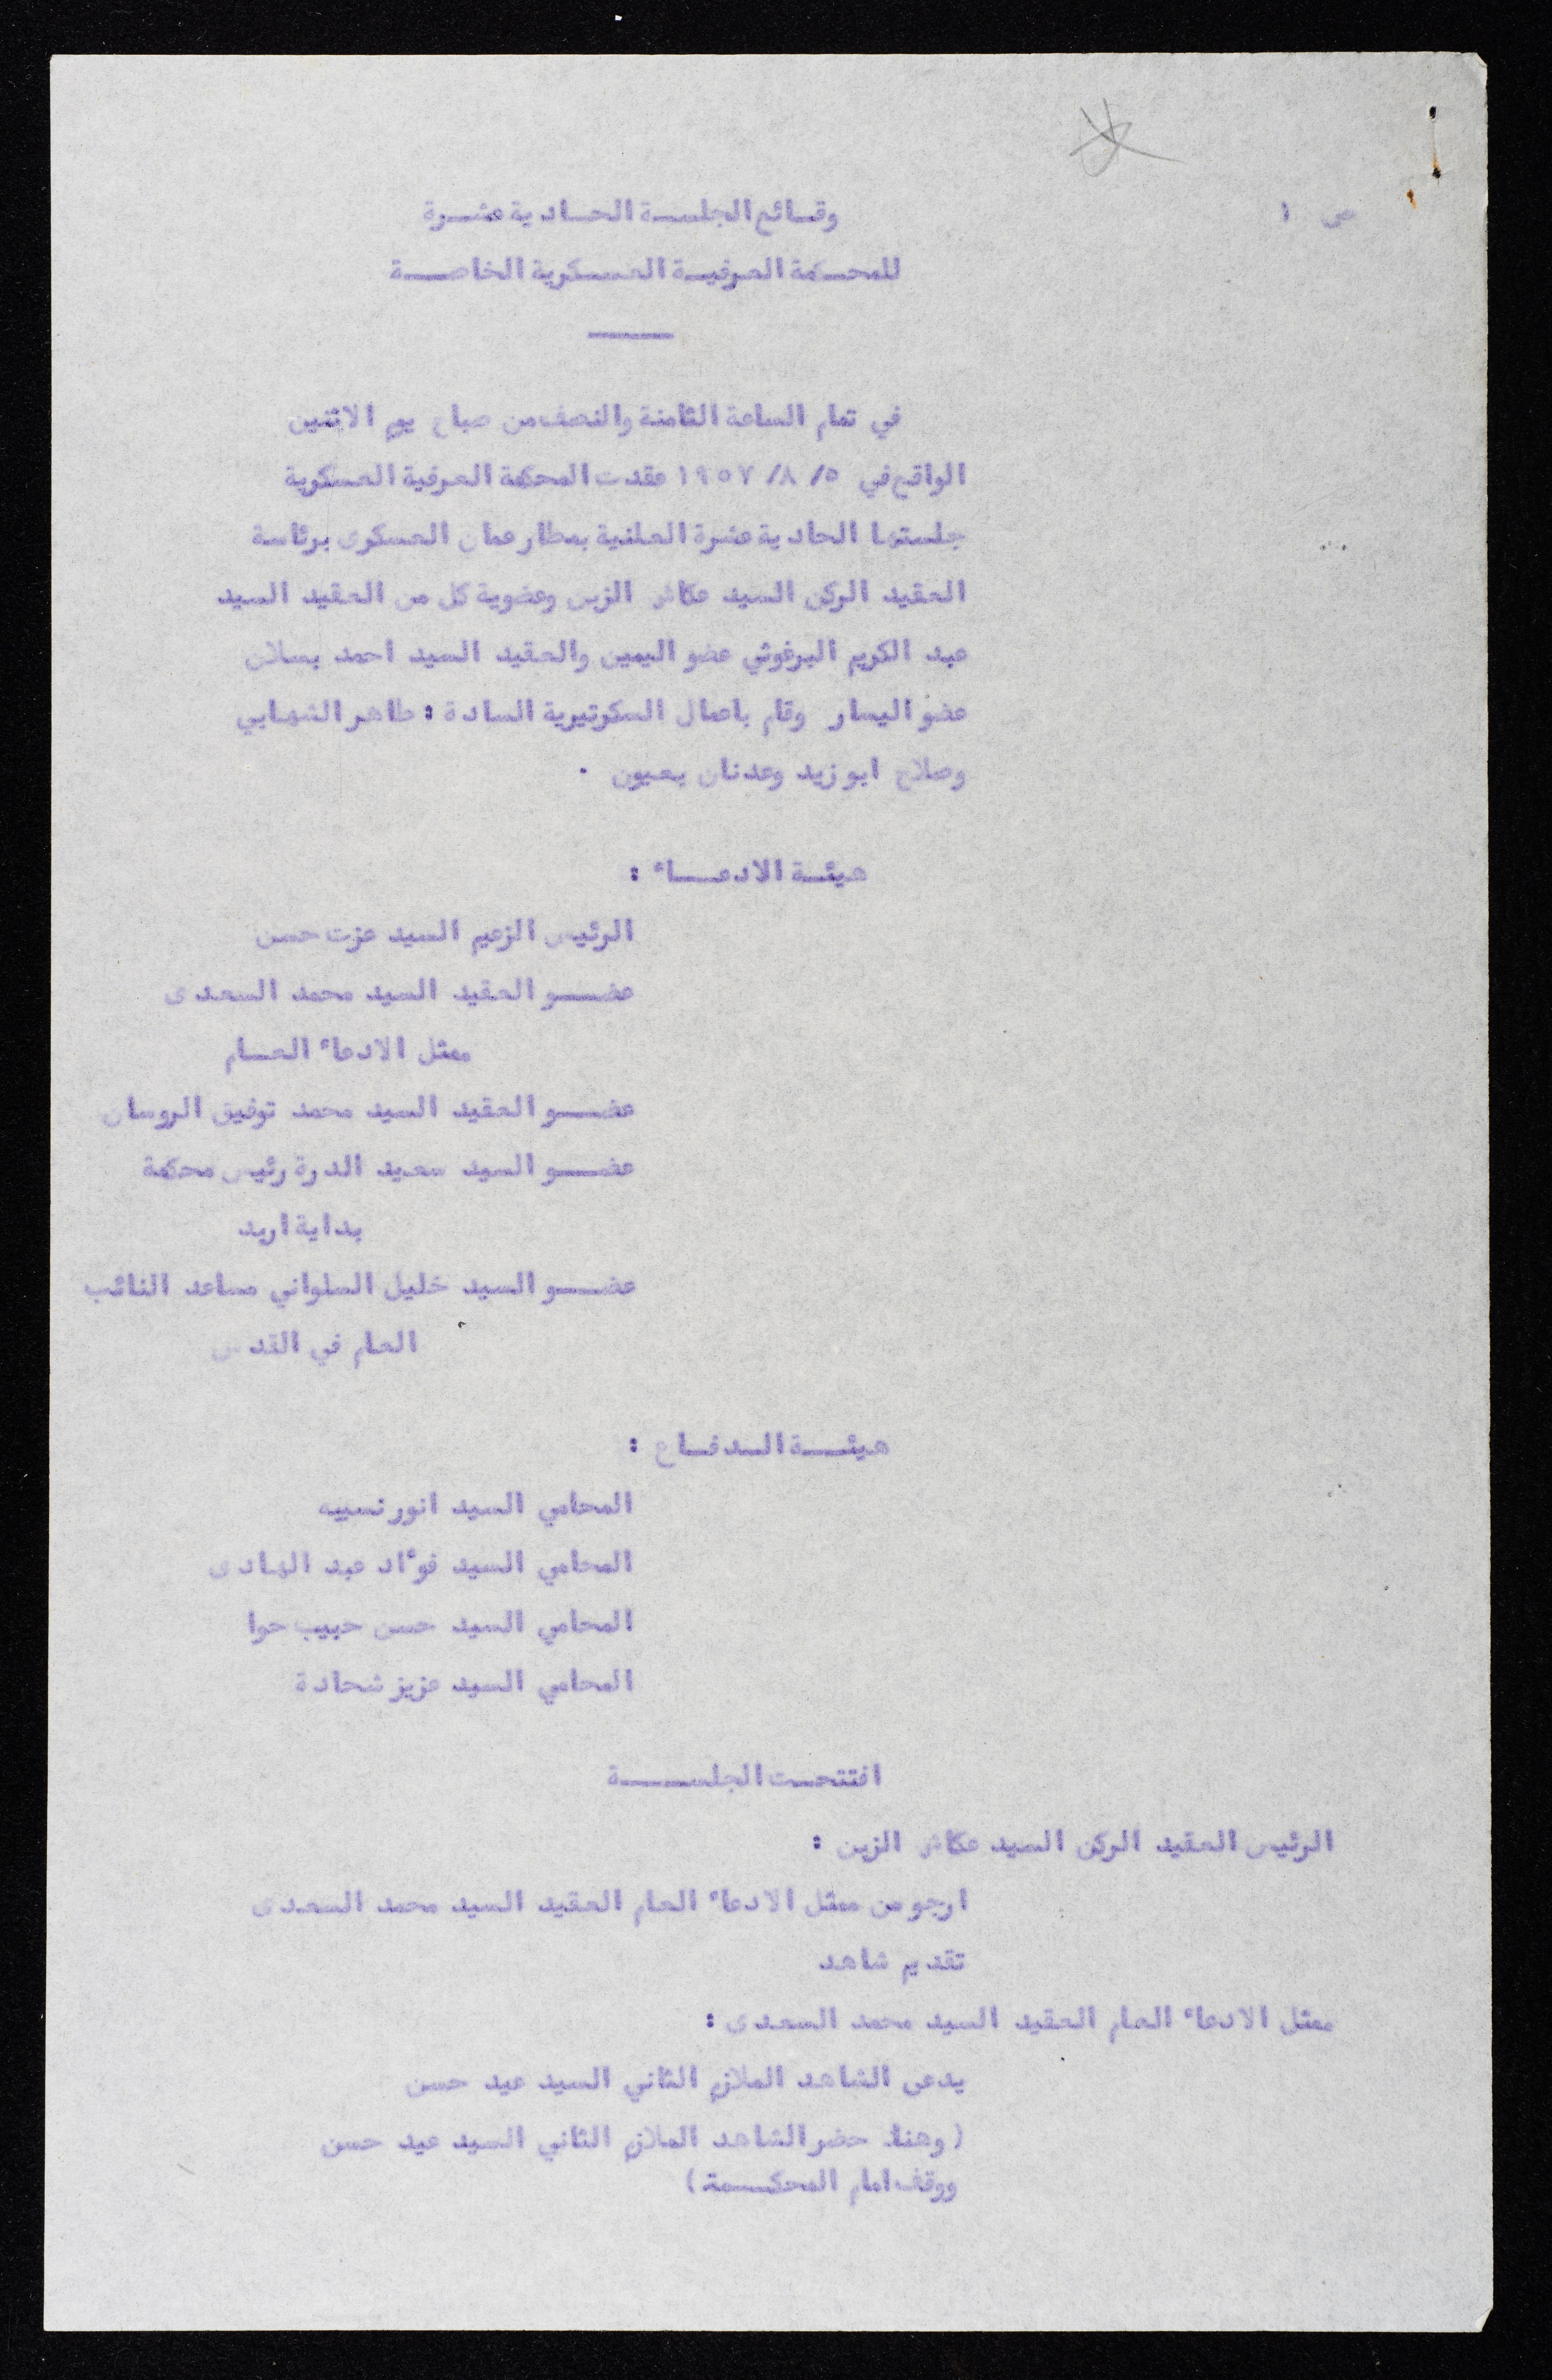 ص ١
وقائع الجلسة الحادية عشرة
للمحكمة العرفية العسكرية الخاصة
في تمام الساعة الثامنة والنصف من صباح يوم الاثنين
الواقع في ٥/ ٨/ ١٩٥٧ عقدت المحكمة العرفية العسكرية
جلستها الحادية عشرة العلنية بمطار عمان العسكرى برئاسة
العقيد الركن السيد عكاش الزبن وعضوية كل من العقيد السيد
عبد الكريم البرغوثي عضو اليمين والعقيد السيد احمد بسلان
عضو اليسار وقام باعمال السكرتيرية السادة : طاهر الشهابي
وصلاح ابو زيد وعدنان بعيون .
هيئة الادعاء :
الرئيس الزعيم السيد عزت حسن
عضو العقيد السيد محمد السعدى
ممثل الادعاء العام
عضو العقيد السيد محمد توفيق الروسان
عضو السيد سعيد الدرة رئيس محكمة
بداية اربد
عضو السيد خليل السلواني مساعد النائب
العام في القدس
هيئة الدفاع :
المحامي السيد انور نسيبه
المحامي السيد فؤاد عبد الهادى
المحامي السيد حسن حبيب حوا
المحامي السيد عزيز شحادة
افتتحت الجلسة
الرئيس العقيد الركن السيد عكاش الزبن :
ارجو من ممثل الادعاء العام العقيد السيد محمد السعدى
تقديم شاهد
ممثل الادعاء العام العقيد السيد محمد السعدى :
يدعى الشاهد الملازم الثاني السيد عيد حسن
( وهنا حضر الشاهد الملازم الثاني السيد عيد حسن
ووقف امام المحكمة )